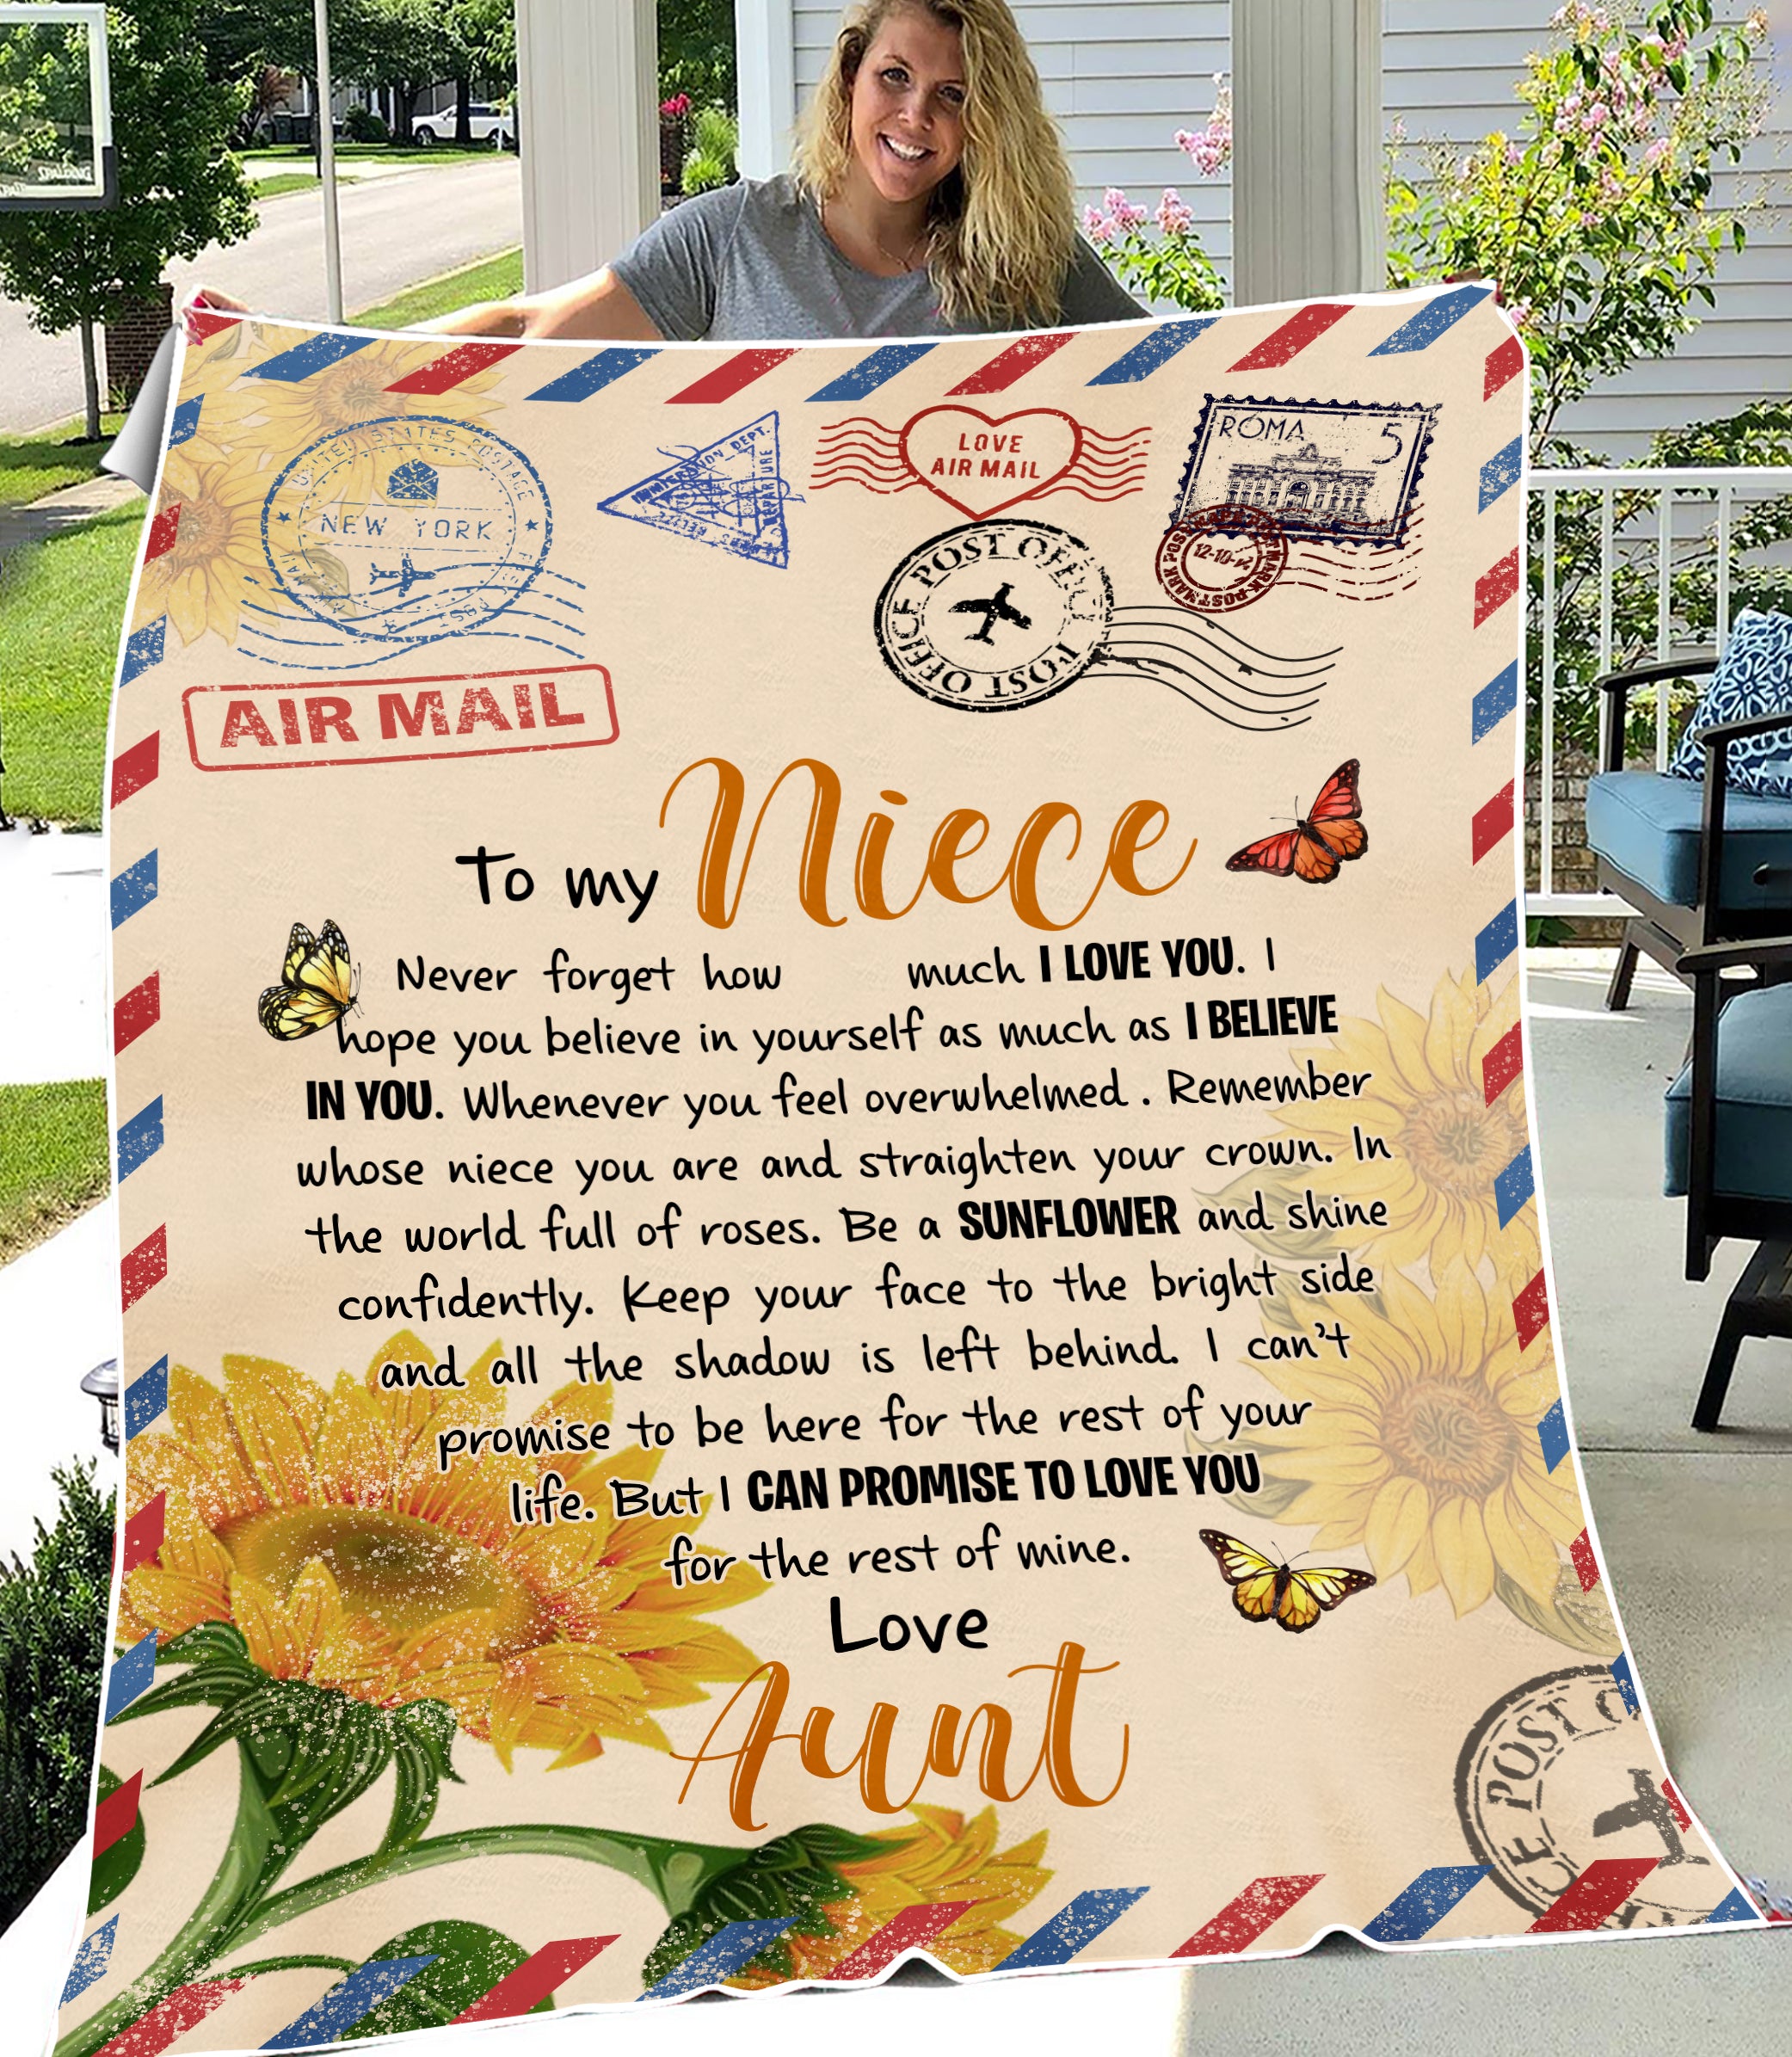 UNITED STATES POSTAGE
NEW YORK
AIR MAIL
IMMIGRATION DEPT.
DEPARTURE
LOVE
AIR MAIL
ROMA
5
12-10-
POSTMARK
POST OFFICE
POST OFFICE
To my Niece
Never forget how much I LOVE YOU. I
hope you believe in yourself as much as I BELIEVE
IN YOU. Whenever you feel overwhelmed . Remember
whose niece you are and straighten your crown. In
the world full of roses. Be a SUNFLOWER and shine
confidently. Keep your face to the bright side
and all the shadow is left behind. I can't
promise to be here for the rest of your
life. But I CAN PROMISE TO LOVE YOU
for the rest of mine.
Love
Aunt
POST